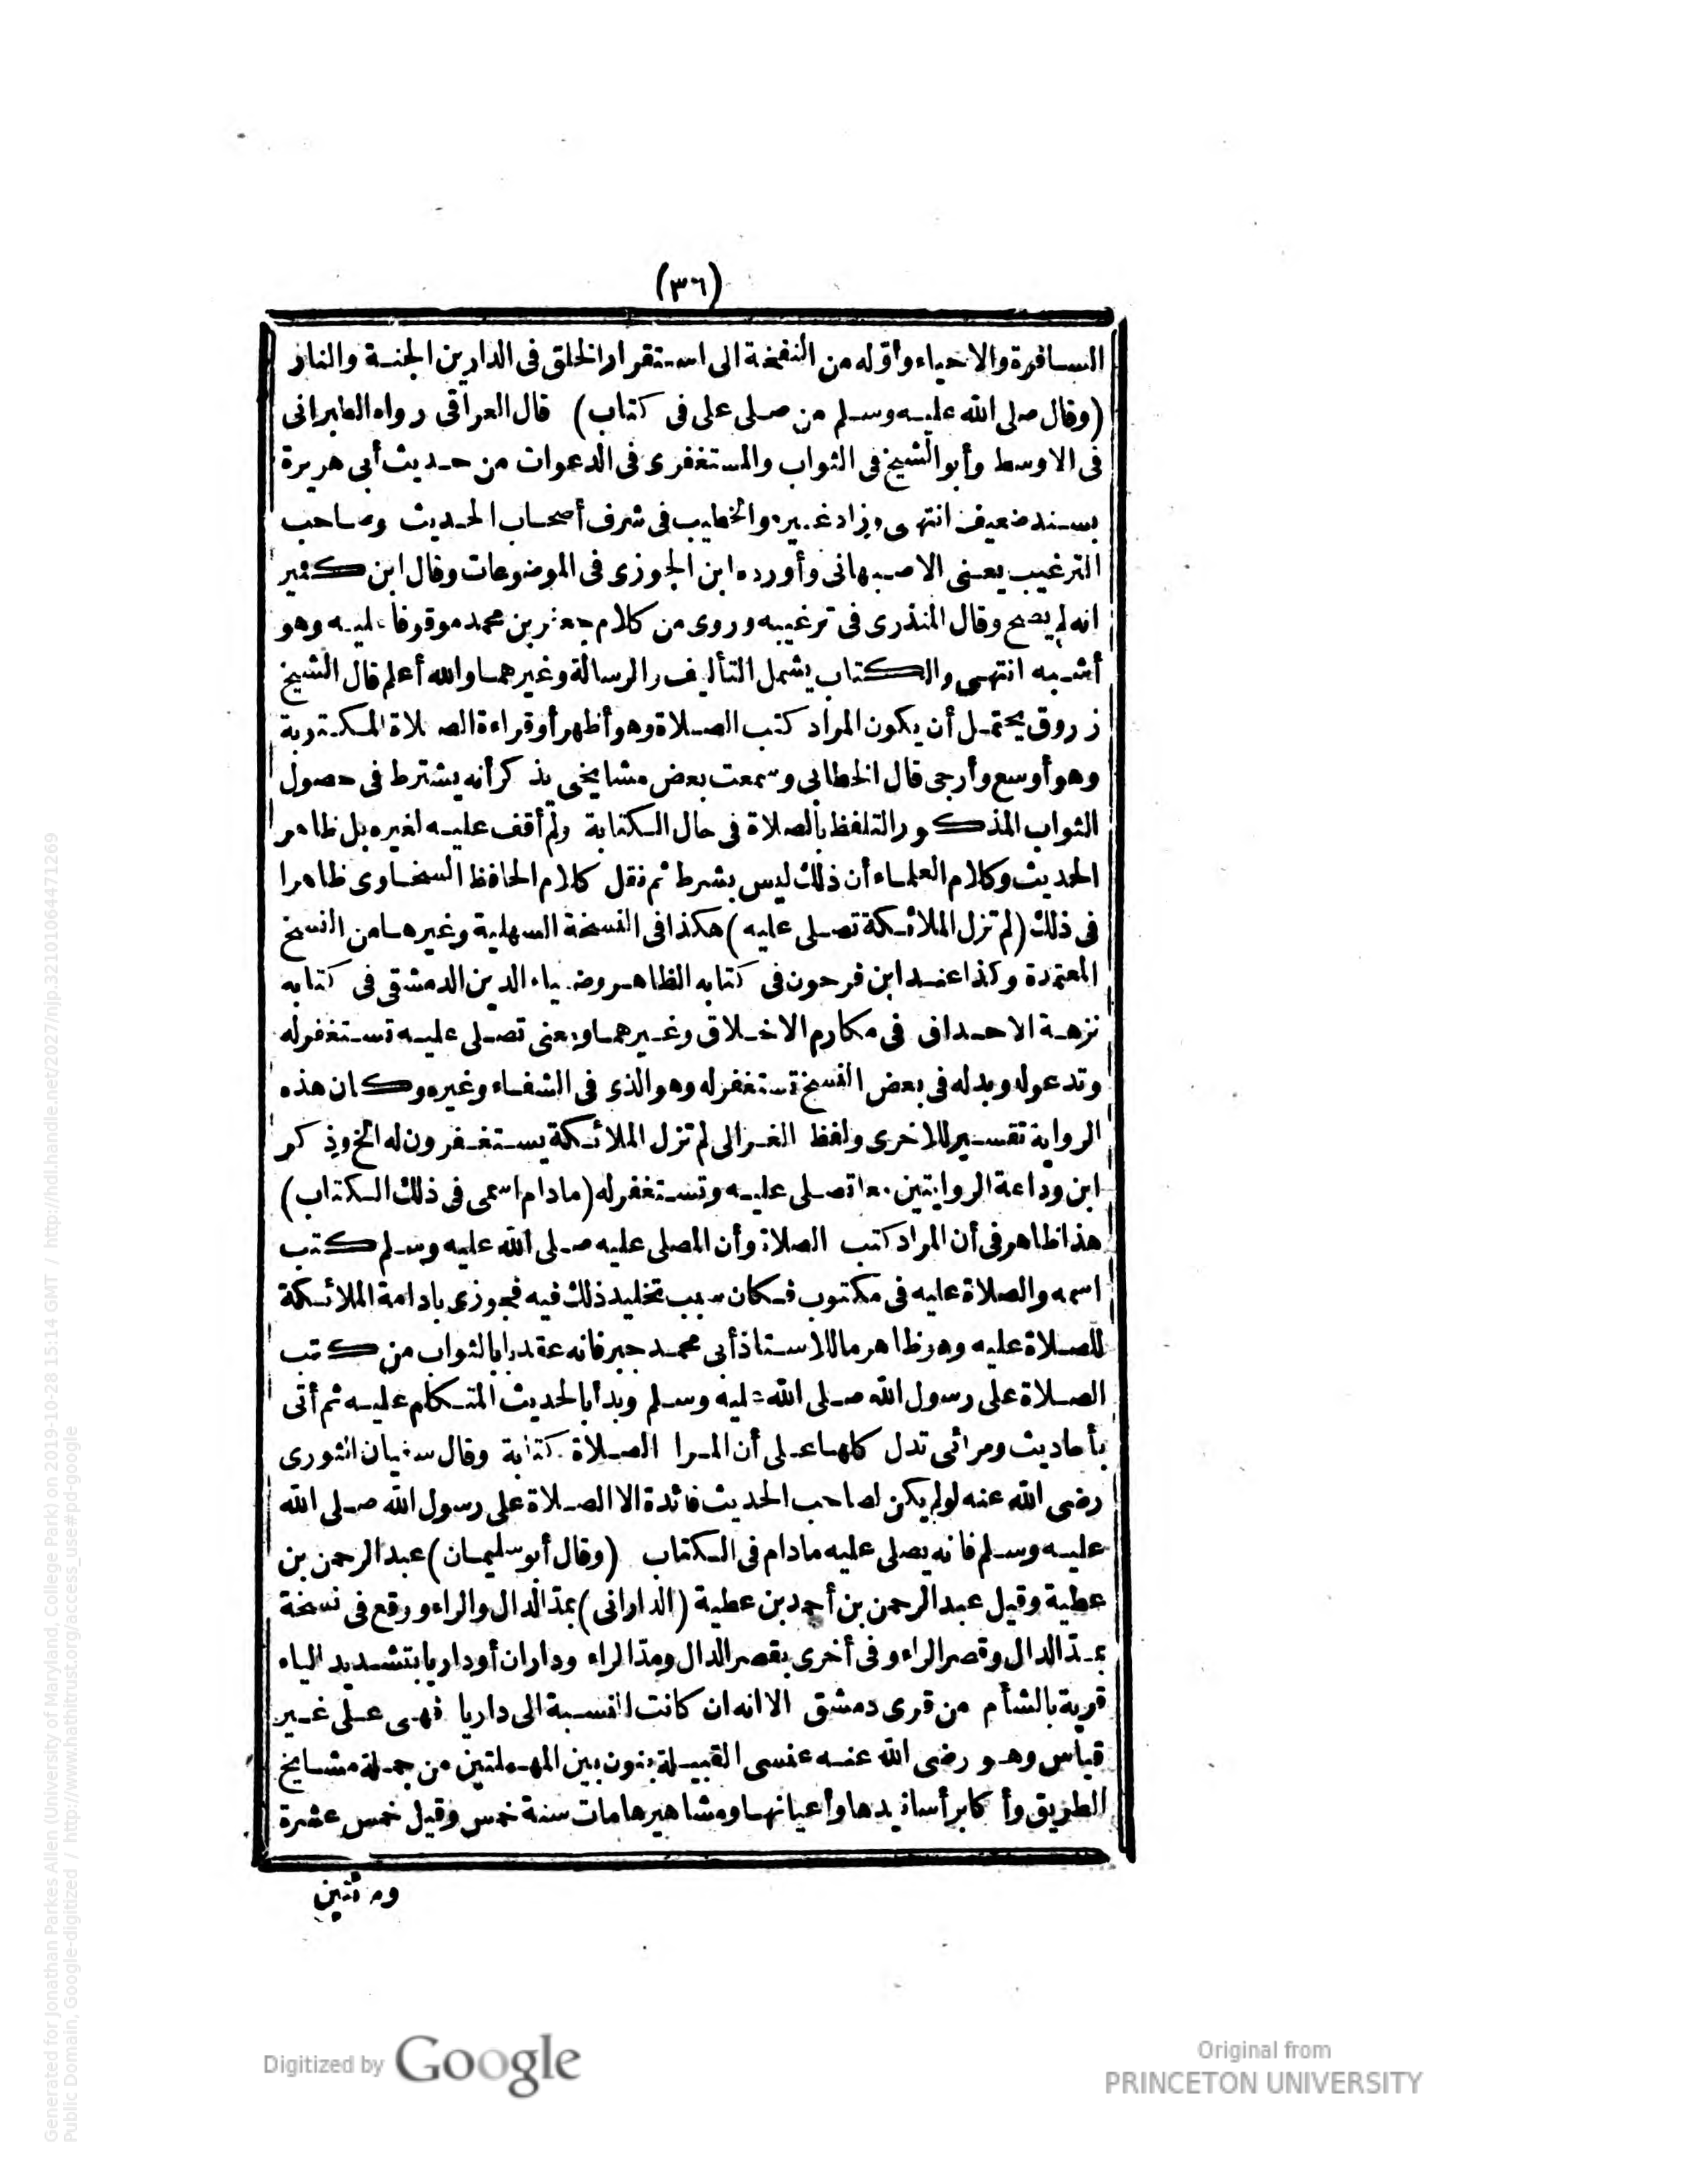 (٣٦)
السافرة والاحياء وأوله من النفخة الى استقرار الخلق فى الدارين الجنة والنار
(وقال صلى الله عليه وسلم من صلى على فى كتاب) قال العراقى رواه الطبرانى
فى الاوسط وأبو الشيخ فى الثواب والمستغفرى فى الدعوات من حديث أبى هريرة
بسند ضعيف انتهى وزاد غيره والخطيب فى شرف أصحاب الحديث وصاحب
الترغيب يعنى الاصبهانى وأورده ابن الجوزى فى الموضوعات وقال ابن كثير
انه لم يصح وقال المنذرى فى ترغيبه وروى من كلام جعفر بن محمد موقوفا عليه وهو
أشبه انتهى والكتاب يشمل التأليف والرسالة وغيرهما والله أعلم قال الشيخ
زروق يحتمل أن يكون المراد كتب الصلاة وهو أظهر أو قراءة الصلاة المكتوبة
وهو أوسع وأرجى قال الخطابى وسمعت بعض مشايخى يذكر أنه يشترط فى حصول
الثواب المذكور التلفظ بالصلاة فى حال الكتابة ولم أقف عليه لغيره بل ظاهر
الحديث وكلام العلماء أن ذلك ليس بشرط ثم نقل كلام الحافظ السخاوى ظاهرا
فى ذلك (لم تزل الملائكة تصلى عليه) هكذا فى النسخة السهلية وغيرها من النسخ
المعتمدة وكذا عند ابن فرحون فى كتابه الظاهر وضياء الدين الدمشقى فى كتابه
نزهة الاحداق فى مكارم الاخلاق وغيرهما ويعنى تصلى عليه تستغفر له
وتدعو له وبدله فى بعض النسخ تستغفر له وهو الذى فى الشفاء وغيره وكان هذه
الرواية تفسير للاخرى ولفظ الغزالى لم تزل الملائكة يستغفرون له الخ وذكر
ابن وداعة الروايتين معا تصلى عليه وتستغفر له (مادام اسمى فى ذلك الكتاب)
هذا ظاهر فى أن المراد كتب الصلاة وأن المصلى عليه صلى الله عليه وسلم كتب
اسمه والصلاة عليه فى مكتوب فكان سبب تخليد ذلك فيه فجوزى بادامة الملائكة
للصلاة عليه وهو ظاهر ما للاستاذ أبى محمد جبر فانه عقد بابا لثواب من كتب
الصلاة على رسول الله صلى الله عليه وسلم وبدأ بالحديث المتكلم عليه ثم أتى
بأحاديث ومرائى تدل كلها على أن المرا الصلاة كتابة وقال سفيان الثورى
رضى الله عنه لو لم يكن لصاحب الحديث فائدة الا الصلاة على رسول الله صلى الله
عليه وسلم فانه يصلى عليه مادام فى الكتاب (وقال أبو سليمان) عبد الرحمن بن
عطية وقيل عبد الرحمن بن أحمد بن عطية (الدارانى) بمد الدال والراء ووقع فى نسخة
بمد الدال وقصر الراء وفى أخرى بقصر الدال ومد الراء وداران أو داريا بتشديد الياء
قرية بالشأم من قرى دمشق الا انه ان كانت النسبة الى داريا فهى على غير
قياس وهو رضى الله عنه عنسى القبيلة بنون بين المهملتين من جملة مشايخ
الطريق وأكابر أسانيدها وأعيانها ومشاهيرها مات سنة خمس وقيل خمس عشرة
ومئتين
Digitized by Google
Original from
PRINCETON UNIVERSITY
Generated for Jonathan Parkes Allen (University of Maryland, College Park) on 2019-10-28 15:14 GMT / http://hdl.handle.net/2027/njp.32101064471269
Public Domain, Google-digitized / http://www.hathitrust.org/access_use#pd-google